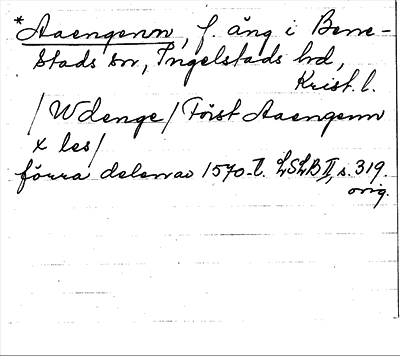 *Aaengenn, f. äng i Bene-
stads sn, Ingelstads hd,
Krist. l.
/Wdenge/ Först Aaengenn
x les/
förra delen av 1570-t. LSLB II, s. 319.
orig.